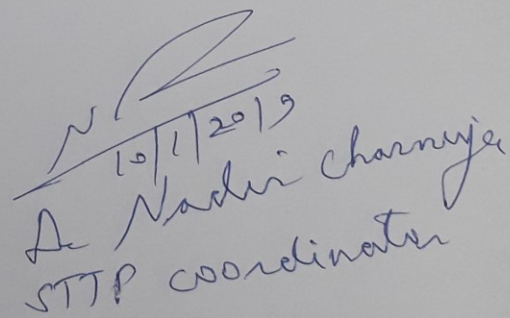 10/1/2019
Dr Nadir Charniya
STTP coordinator